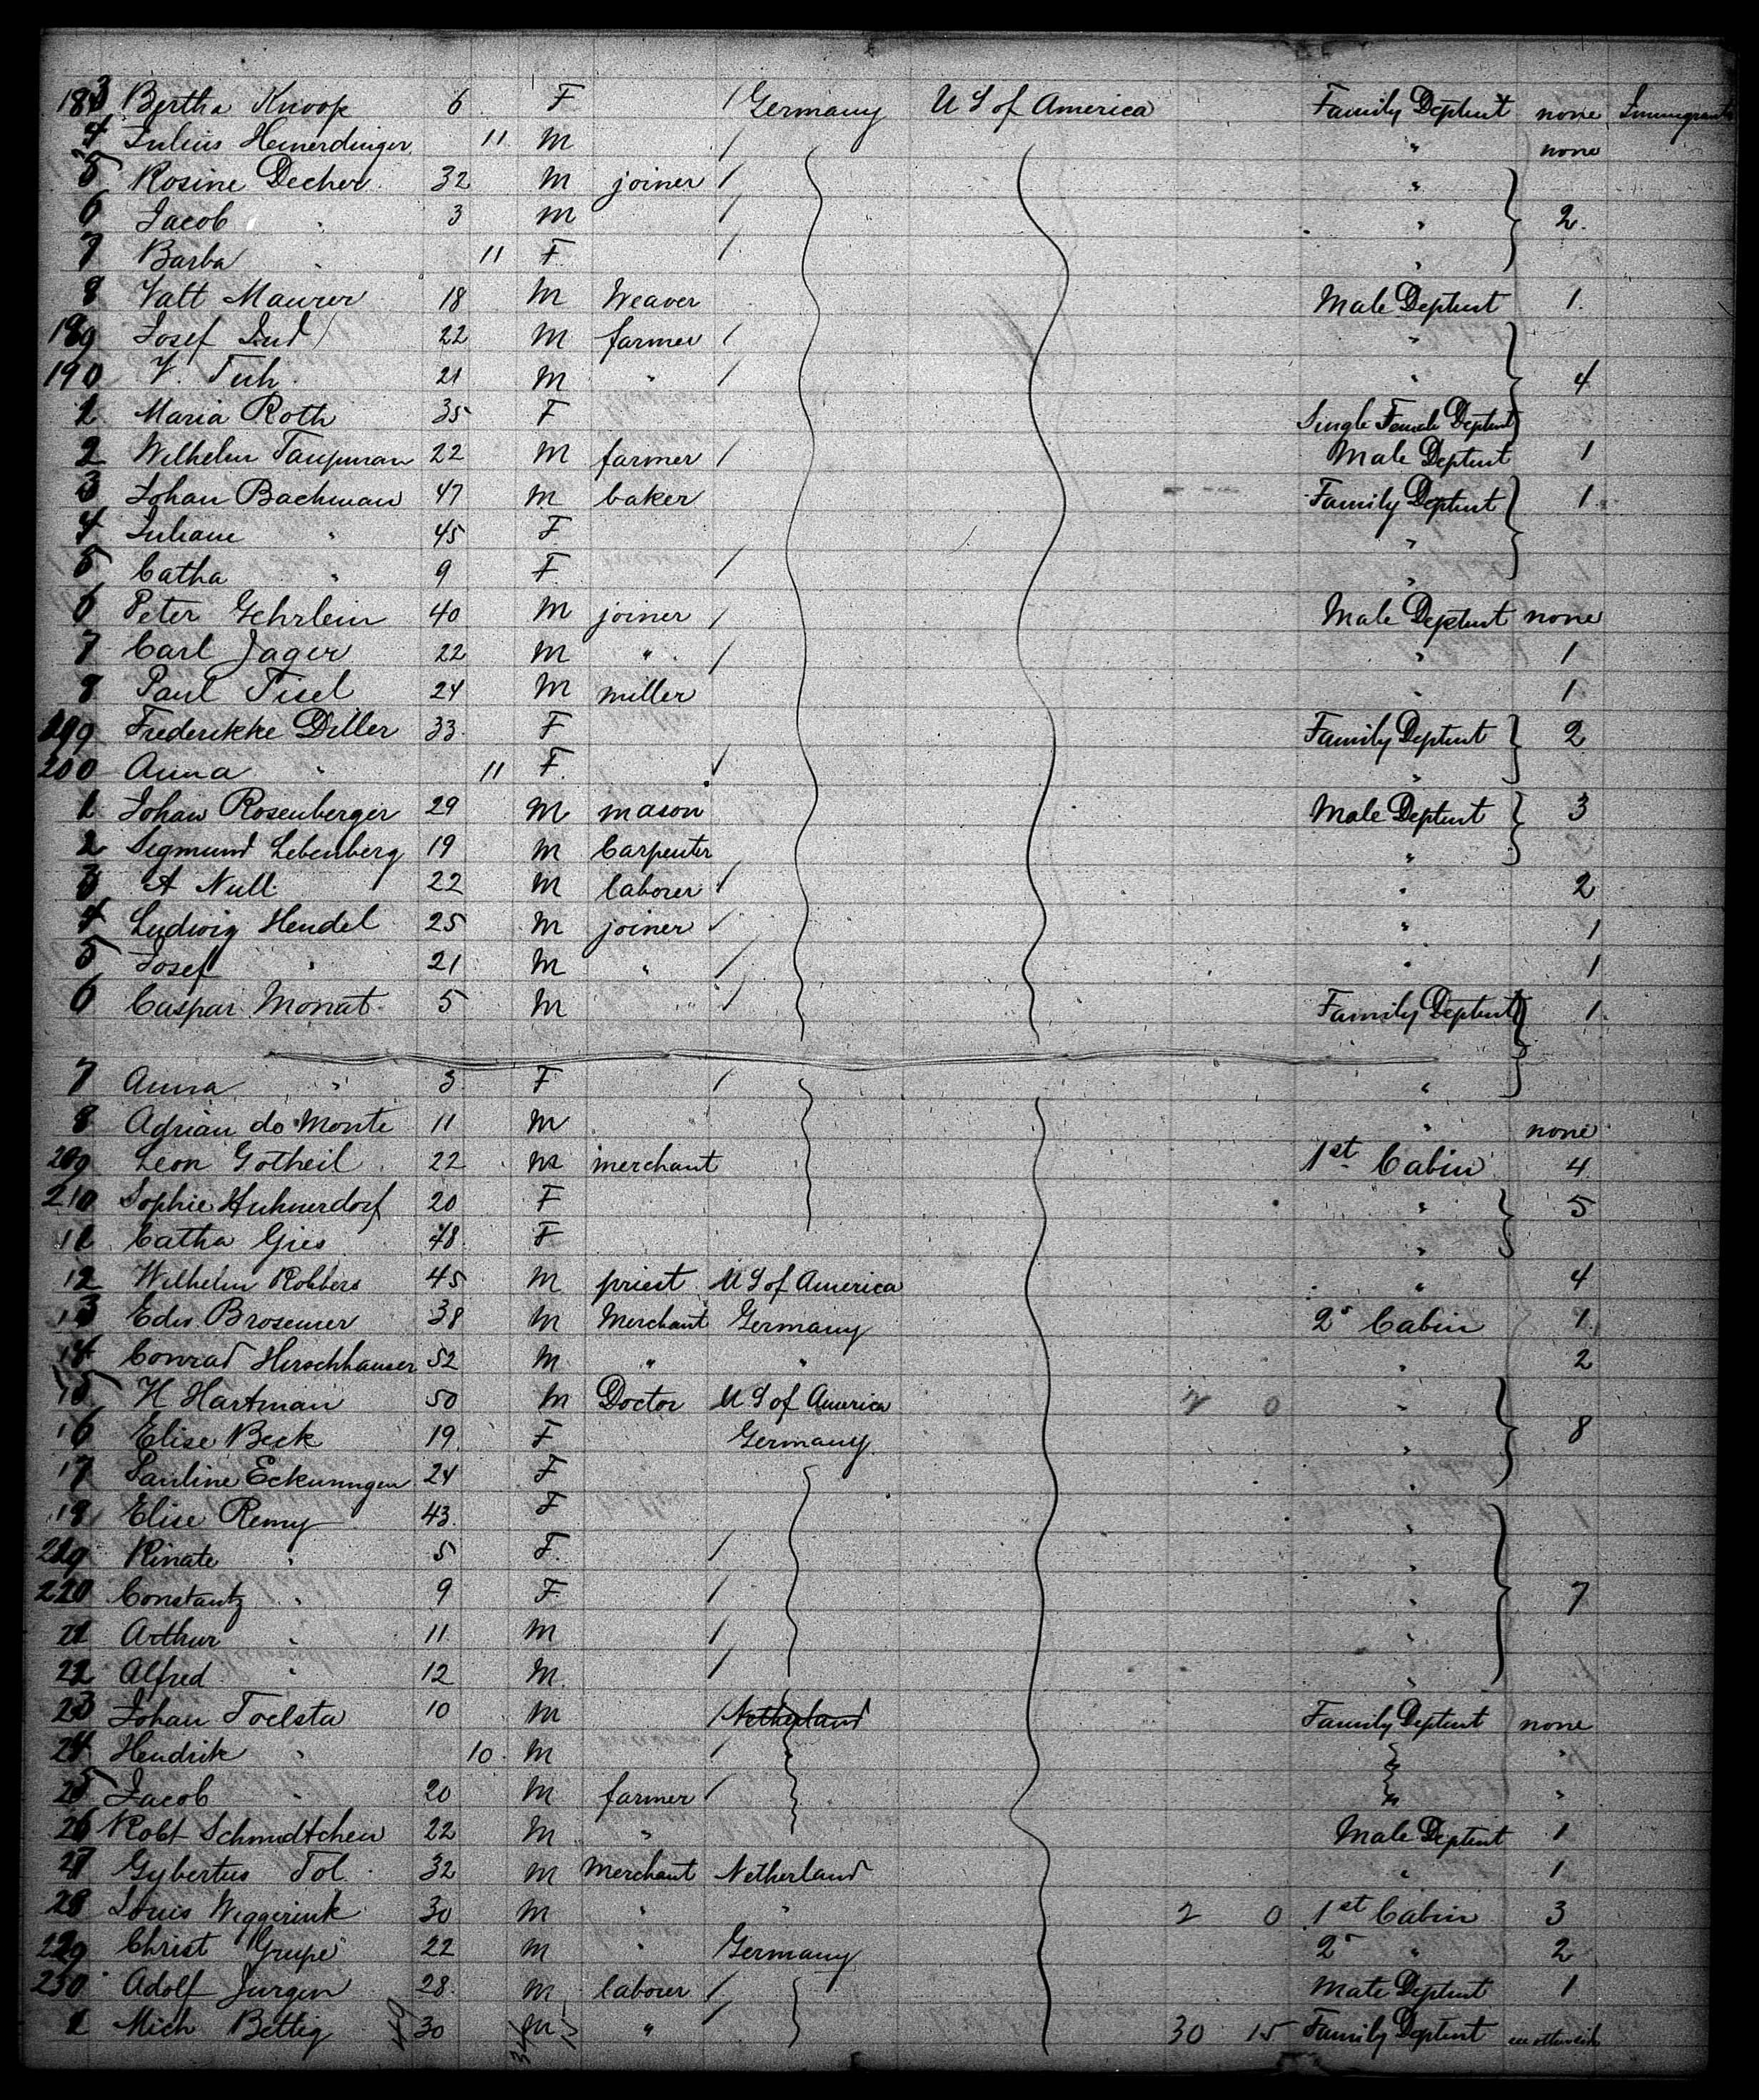 183 Bertha Knoop 6 F / Germany U S of America Family Deptmt none Immigrants
4 Julius Heinerdinger 11 M / " none
5 Rosine Decher 32 M joiner / "
6 Jacob " 3 M / " 2.
7 Barba " 11 F / "
8 Valt Maurer 18 M Weaver Male Deptmt 1.
189 Josef Jud 22 M farmer / "
190 V. Tuh 21 M " / " 4
1 Maria Roth 35 F Single Female Deptmt
2 Wilhelm Taupman 22 M farmer / Male Deptmt 1
3 Johan Bachman 47 M baker Family Deptmt 1
4 Juliane " 45 F "
5 Catha " 9 F / "
6 Peter Gehrlein 40 M joiner / Male Deptmt none
7 Carl Jager 22 M " / " 1
8 Paul Fisel 24 M miller " 1
199 Frederikke Diller 33 F Family Deptmt 2
200 Anna " 11 F / "
1 Johan Rosenberger 29 M mason Male Deptmt 3
2 Segmund Lebenberg 19 M Carpenter "
3 A Null 22 M laborer / " 2
4 Ludwig Hendel 25 M joiner / " 1
5 Josef " 21 M " / " 1
6 Caspar Monat 5 M / Family Deptmt 1.
7 Anna " 3 F / "
8 Adrian do Monte 11 M " none
209 Leon Gotheil 22 M merchant 1st Cabin 4
210 Sophie Huhnerdorf 20 F " 5
11 Catha Gies 48 F "
12 Wilhelm Robbers 45 M priest U S of America " 4
13 Edw Brosemer 38 M Merchant Germany 2d Cabin 1
14 Conrad Hirschhauser 52 M " " " 2
15 H Hartman 50 M Doctor U S of America 2 0 "
16 Elise Beck 19 F Germany " 8
17 Pauline 24 F "
18 Elise Remy 43 F "
219 Rinate " 5 F / "
220 Constantz " 9 F / " 7
21 Arthur " 11 M / "
22 Alfred " 12 M / "
23 Johan Toelsta 10 M / Netherland Family Deptmt none
24 Hendrik " 10 M / "
25 Jacob " 20 M farmer / " "
26 Robt Schmidtchen 22 M " Male Deptmt 1
27 Gybertus Tol 32 M Merchant Netherland " 1
28 Louis Weggerink 30 M " " 2 0 1st Cabin 3
229 Christ Grupe 22 M " Germany 2d " 2
230 Adolf Jurgen 28 M laborer / Male Deptmt 1
1 Mich Bettig 30 M " / 30 15 Family Deptmt